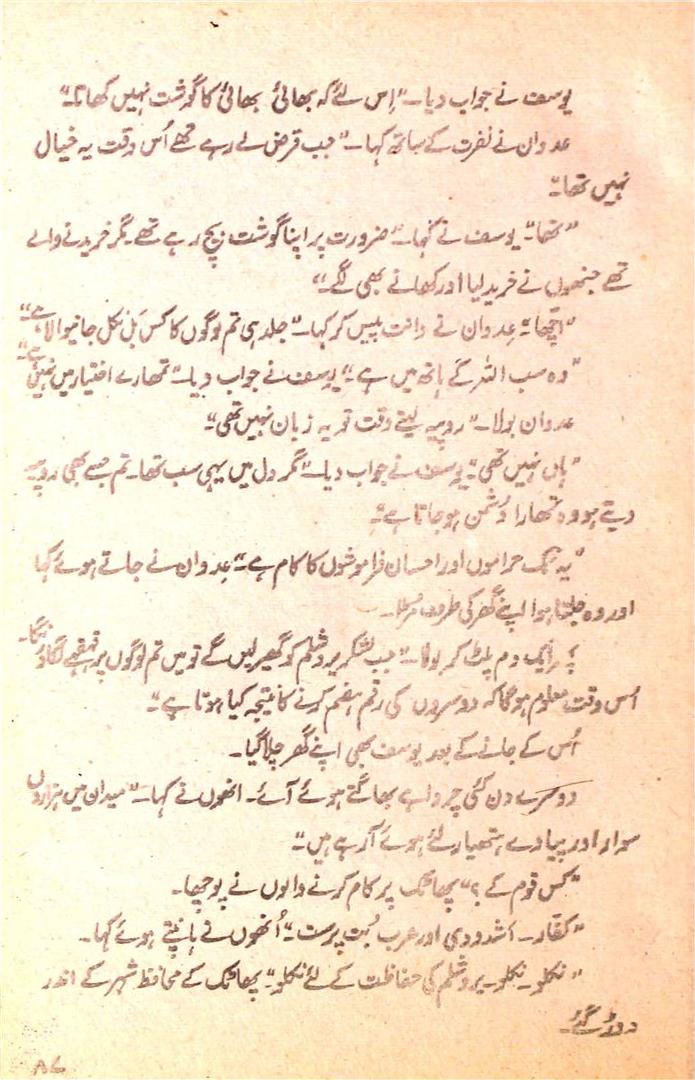 یوسف نے جواب دیا۔ "اِس لئے کہ بھائی بھائی کا گوشت نہیں کھاتا۔"
عدوان نے نفرت کے ساتھ کہا۔ "جب قرض لے رہے تھے اُس وقت یہ خیال
نہیں تھا۔"
"تھا۔" یوسف نے کہا۔ "ضرورت پر اپنا گوشت بیچ رہے تھے۔ مگر خریدنے والے
تھے جنھوں نے خرید لیا اور کھانے بھی لگے۔"
"اچھا۔" عدوان نے دانت پیس کر کہا۔ "جلد ہی تم لوگوں کا کس بَل نکل جانیوالا ہے۔"
"وہ سب اللہ کے ہاتھ میں ہے۔" یوسف نے جواب دیا۔ "تمھارے اختیار میں نہیں ہے۔"
عدوان بولا۔ "روپیہ لیتے وقت تو یہ زبان نہیں تھی۔"
"ہاں نہیں تھی۔" یوسف نے جواب دیا۔ "مگر دل میں یہی سب تھا۔ تم جسے بھی روپیہ
دیتے ہو وہ تمھارا دُشمن ہو جاتا ہے۔"
"یہ نمک حراموں اور احسان فراموشوں کا کام ہے۔" عدوان نے جاتے ہوئے کہا
اور وہ جلتا ہوا اپنے گھر کی طرف مڑا۔
پھر ایک دم پلٹ کر بولا۔ "جب لشکر یروشلم کو گھیر لیں گے تو میں تم لوگوں پر قہقہے لگاؤنگا۔
اُس وقت معلوم ہوگا کہ دوسروں کی رقم ہضم کرنے کا نتیجہ کیا ہوتا ہے۔"
اُس کے جانے کے بعد یوسف بھی اپنے گھر چلا گیا۔
دوسرے دن کئی چرواہے بھاگتے ہوئے آئے۔ انھوں نے کہا۔ "میدان میں ہزاروں
سوار اور پیادے ہتھیار لئے ہوئے آ رہے ہیں۔"
"کس قوم کے؟" پھاٹک پر کام کرنے والوں نے پوچھا۔
"کفار۔ اشدودی اور عرب بُت پرست۔" اُنھوں نے ہانپتے ہوئے کہا۔
"نکلو۔ نکلو۔ یروشلم کی حفاظت کے لئے نکلو۔" پھاٹک کے محافظ شہر کے اندر
دوڑ گئے۔
۸۷